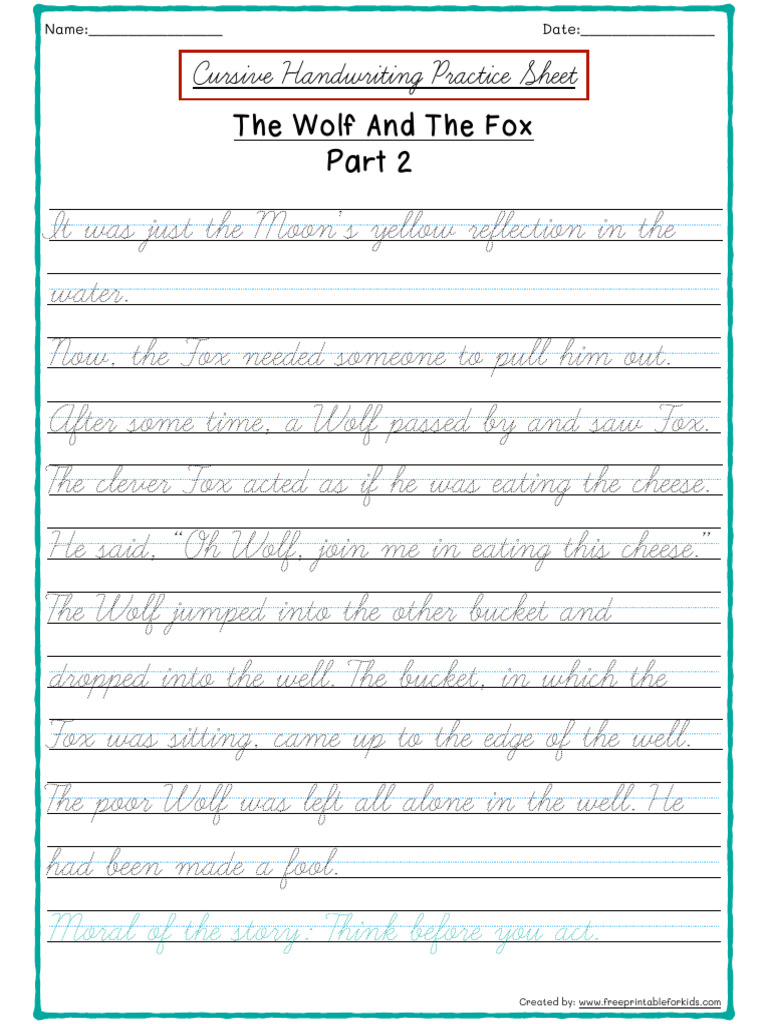 Name:________________ Date:________________
Cursive Handwriting Practice Sheet
The Wolf And The Fox
Part 2
It was just the Moon's yellow reflection in the
water.
Now, the Fox needed someone to pull him out.
After some time, a Wolf passed by and saw Fox.
The clever Fox acted as if he was eating the cheese.
He said, “Oh Wolf, join me in eating this cheese.”
The Wolf jumped into the other bucket and
dropped into the well. The bucket, in which the
Fox was sitting, came up to the edge of the well.
The poor Wolf was left all alone in the well. He
had been made a fool.
Moral of the story: Think before you act.
Created by: www.freeprintableforkids.com